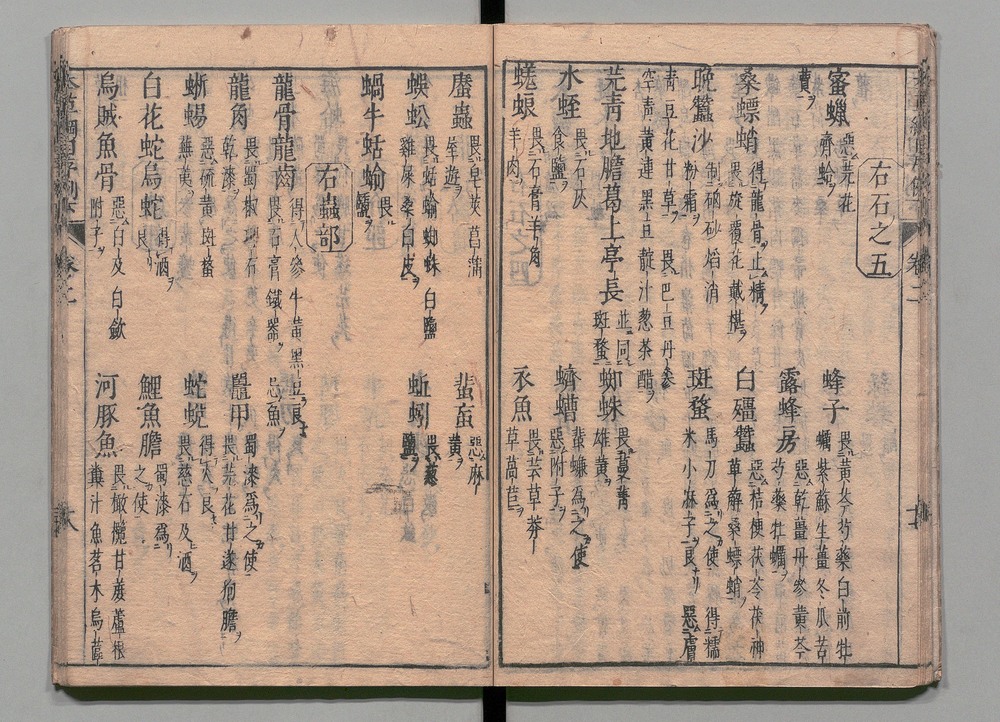 右石之五
蜜蠟 惡芫花 齊蛤
蜂子 畏黃芩芍藥白前牡蠣紫蘇生薑冬瓜苦蕒
露蜂房 惡乾薑丹參黃芩芍藥牡蠣
桑螵蛸 得龍骨止精 畏旋覆花戴椹
白殭蠶 惡桔梗茯苓茯神萆薢桑螵蛸
晚蠶沙 制硇砂焰消粉霜
斑蝥 馬刀爲之使 得糯米小麻子良 惡膚青豆花甘草 畏巴豆丹參空青黃連黑豆靛汁葱茶醋
芫青地膽葛上亭長 並同斑蝥
蜘蛛 畏蔓菁雄黃
水蛭 畏石灰食鹽
蠐螬 蜚蠊爲之使 惡附子
蜣蜋 畏石膏羊角羊肉
衣魚 畏芸草莽草萵苣
䗪蟲 畏皂莢菖蒲屋遊
蜚䖟 惡麻黃
蜈蚣 畏蛞蝓蜘蛛白鹽雞屎桑白皮
蚯蚓 畏葱鹽
蝸牛蛞蝓 畏鹽
右蟲部
龍骨龍齒 得人參牛黃黑豆良 畏石膏鐵器 忌魚
龍角 畏蜀椒理石乾漆
鼉甲 蜀漆爲之使 畏芫花甘遂狗膽
蜥蜴 惡硫黃斑蝥蕪荑
蛇蛻 得火良 畏慈石及酒
白花蛇烏蛇 得酒良
鯉魚膽 蜀漆爲之使
烏賊魚骨 惡白及白歛附子
河豚魚 畏橄欖甘蔗蘆根糞汁魚茗木烏蓲
卷二